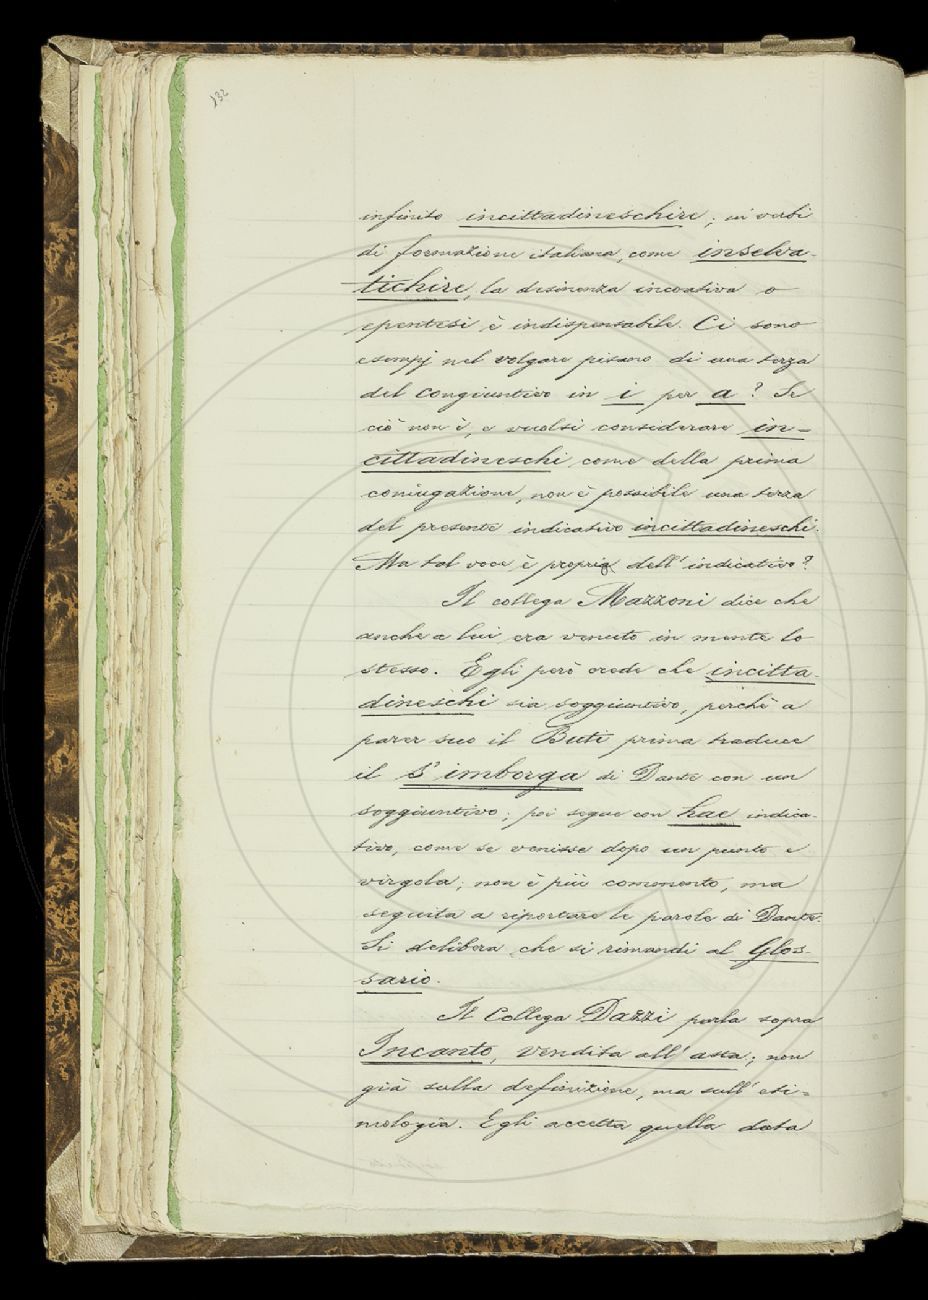 232
infinito incittadineschire; in verbi
di formazione italiana, come inselva-
tichire, la desinenza incoativa o
epentesi è indispensabile. Ci sono
esempj nel volgare pisano di una terza
del congiuntivo in i per a? Se
ciò non è, e vuolsi considerare in-
cittadineschi come della prima
coniugazione, non è possibile una terza
del presente indicativo incittadineschi.
Ma tal voce è propria dell'indicativo?
Il collega Mazzoni dice che
anche a lui era venuto in mente lo
stesso. Egli però crede che incitta-
dineschi sia soggiuntivo, perchè a
parer suo il Buti prima traduce
il s'imborga di Dante con un
soggiuntivo; poi segue con hae indica-
tivo, come se venisse dopo un punto e
virgola; non è più commento, ma
seguita a riportare le parole di Dante.
Si delibera che si rimandi al Glos-
sario.
Il Collega Dazzi parla sopra
Incanto, vendita all'asta; non
già sulla definizione, ma sull'eti-
mologia. Egli accetta quella data